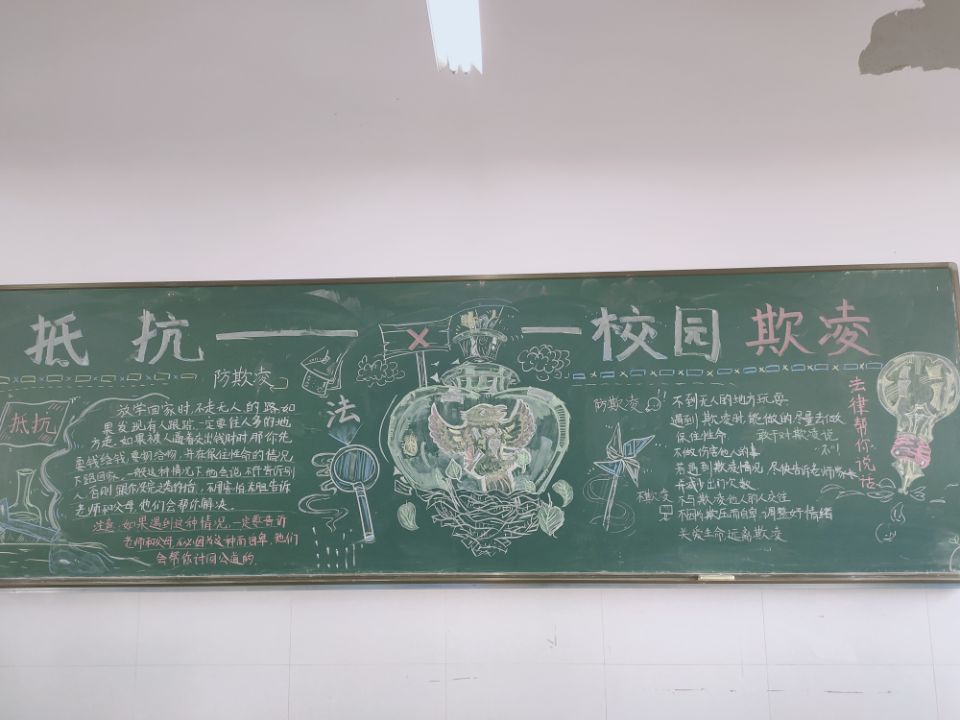 抵抗
校园欺凌
防欺凌
抵抗
法
放学回家时,不走无人的路,如
果发现有人跟踪,一定要往人多的地
方走,如果被人逼着交出钱时,那你先
要钱给钱,要物给物,并在保住性命的情况
下跑回家。一般这种情况下他会说:不许告诉别
人,否则
老师和父母,他们会帮你解决。
注意:如果遇到这种情况,一定要告诉
老师和父母,不必因为这种而自卑,他们
会帮你讨回公道的.
防欺凌
不到无人的地方玩耍
遇到欺凌时,能做的尽量去做
保住性命 敢于对欺凌说
不!
不做伤害他人的事
若遇到欺凌情况,尽快告诉老师家长
不与欺凌他人的人交往
不欺凌
不因为欺压而自卑,调整好情绪
关爱生命远离欺凌
法律帮你说话